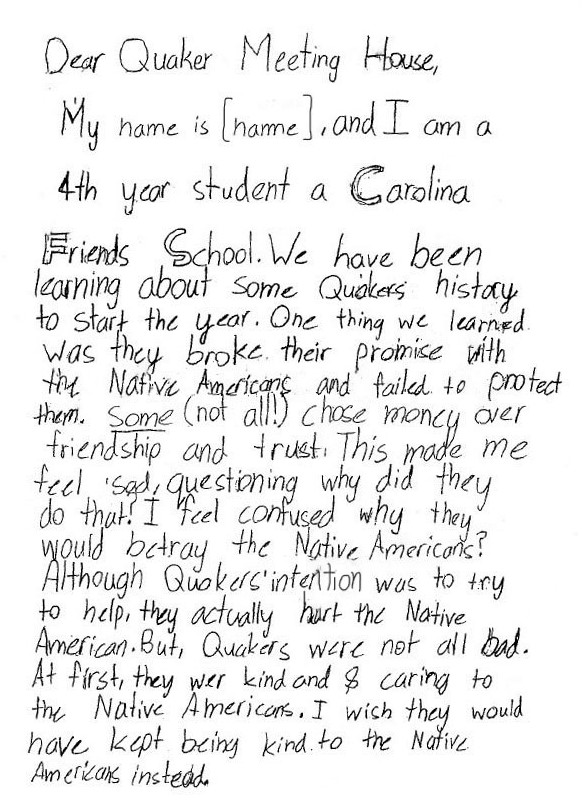 Dear Quaker Meeting House,
My name is [name], and I am a
4th year student a Carolina
Friends School. We have been
learning about some Quakers history
to start the year. One thing we learned
was they broke their promise with
the Native Americans and failed to protect
them. Some (not all!) chose money over
friendship and trust. This made me
feel sad, questioning why did they
do that! I feel confused why they
would betray the Native Americans?
Although Quakers' intention was to try
to help, they actually hurt the Native
American. But, Quakers were not all bad.
At first, they wer kind and & caring to
the Native Americans. I wish they would
have kept being kind to the Native
Americans instead.